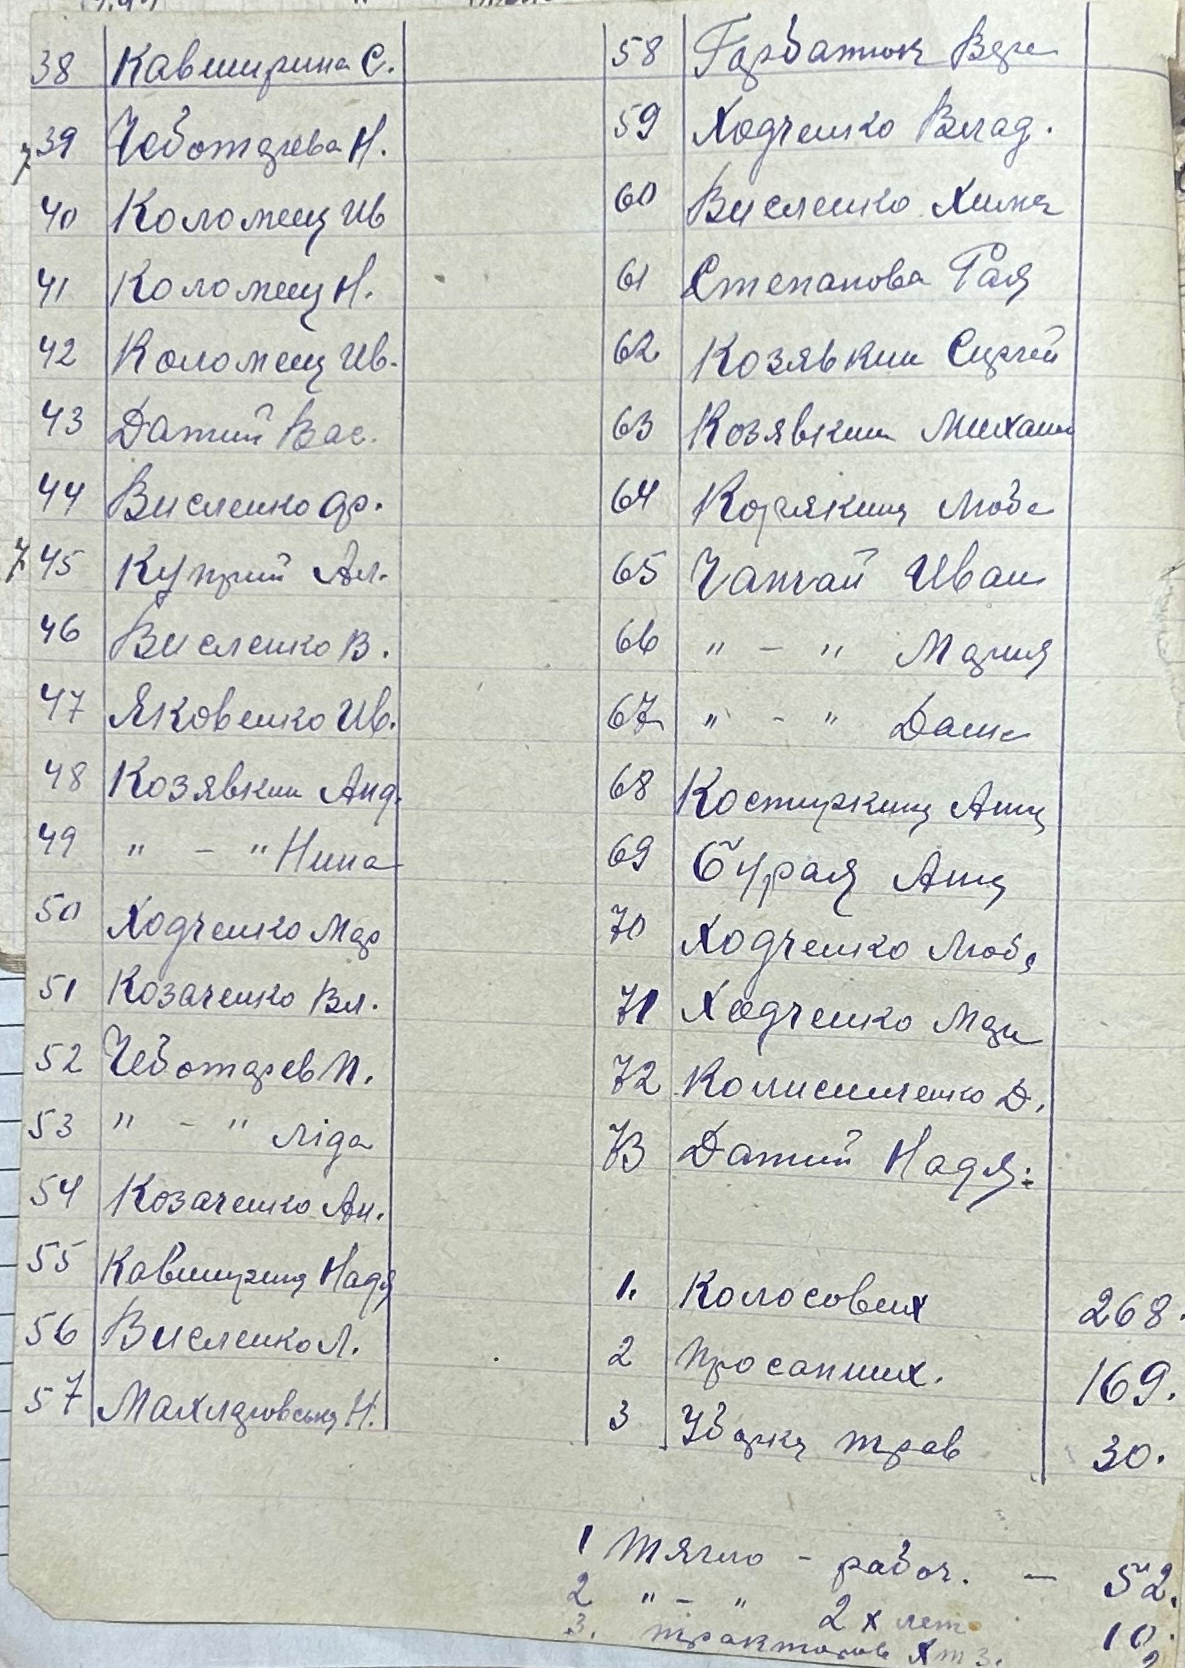 38 Кавширина С.
39 Чеботарева Н.
40 Коломец Ив
41 Коломец Н.
42 Коломец Ив.
43 Датий Вас.
44 Висленко Фр.
7 45 Куприй Ал.
46 Висленко В.
47 Яковенко Ив.
48 Козявкин Анд.
49 " - " Нина
50 Ходченко Мар
51 Козаченко Вл.
52 Чеботарев П.
53 " - " Ліда
54 Козаченко Ан.
55 Кавширина Надя
56 Висленко Л.
57 Махляровська Н.
58 Гарбатюк Вера
59 Ходченко Влад.
60 Висленко Хима
61 Степанова Рая
62 Козявкин Сергей
63 Козявкин Михаил
64 Корякина Люба
65 Чапчай Иван
66 " - " Мария
67 " - " Даша
68 Костиркина Анна
69 Бурая Анна
70 Ходченко Люба
71 Ходченко Мари
72 Колисниченко Д.
73 Датий Надя.
1. Колосовых 268.
2 Просапних. 169.
3 Уборка трав 30.
1 Тягло - рабоч. - 52.
2 " - " 2х лет 10.
3. тракторов ХТЗ.